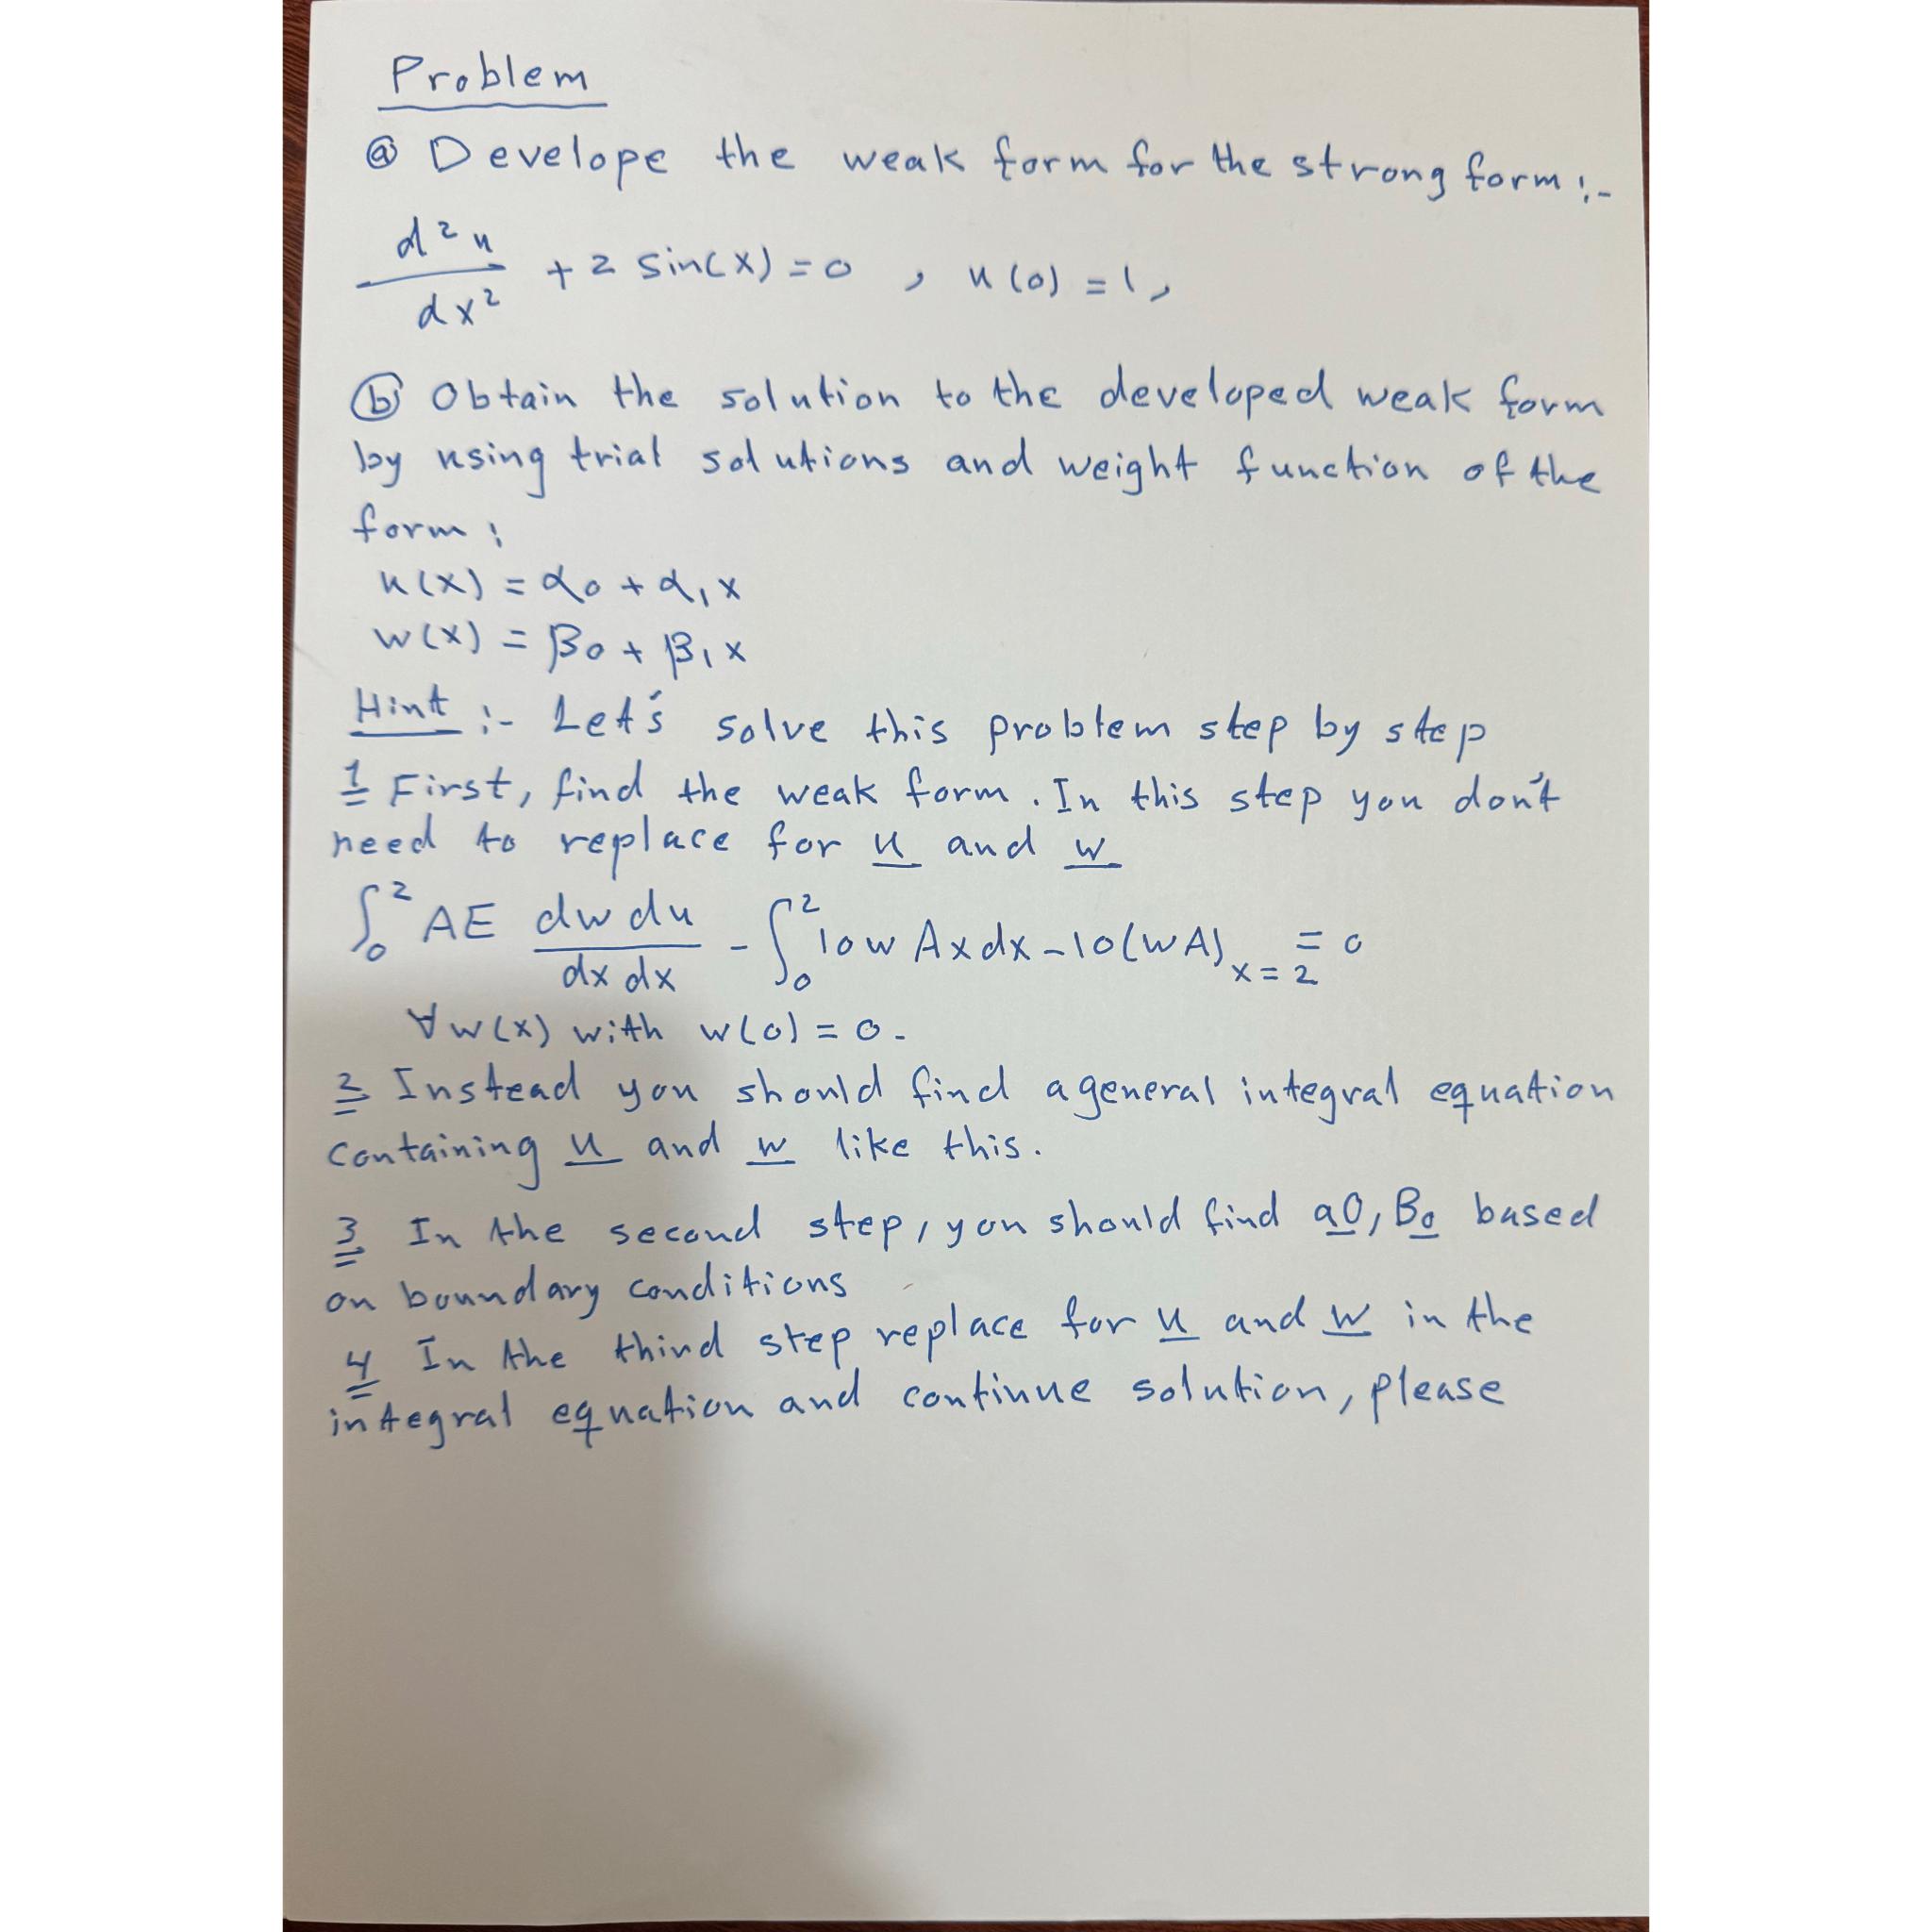 Problem
ⓐ Develope the weak form for the strong form :-
d²u/dx² + 2 sin(x) = 0 , u(0) = 1,
ⓑ Obtain the solution to the developed weak form
by using trial solutions and weight function of the
form :
u(x) = α₀ + α₁x
w(x) = β₀ + β₁x
Hint :- Let's solve this problem step by step
1 First, find the weak form. In this step you don't
need to replace for u and w
∫₀² AE dw du/dx dx - ∫₀² 10w Ax dx - 10(wA)ₓ₌₂ = 0
∀w(x) with w(0) = 0.
2 Instead you should find a general integral equation
containing u and w like this.
3 In the second step, you should find a0, B₀ based
on boundary conditions
4 In the third step replace for u and w in the
integral equation and continue solution, please